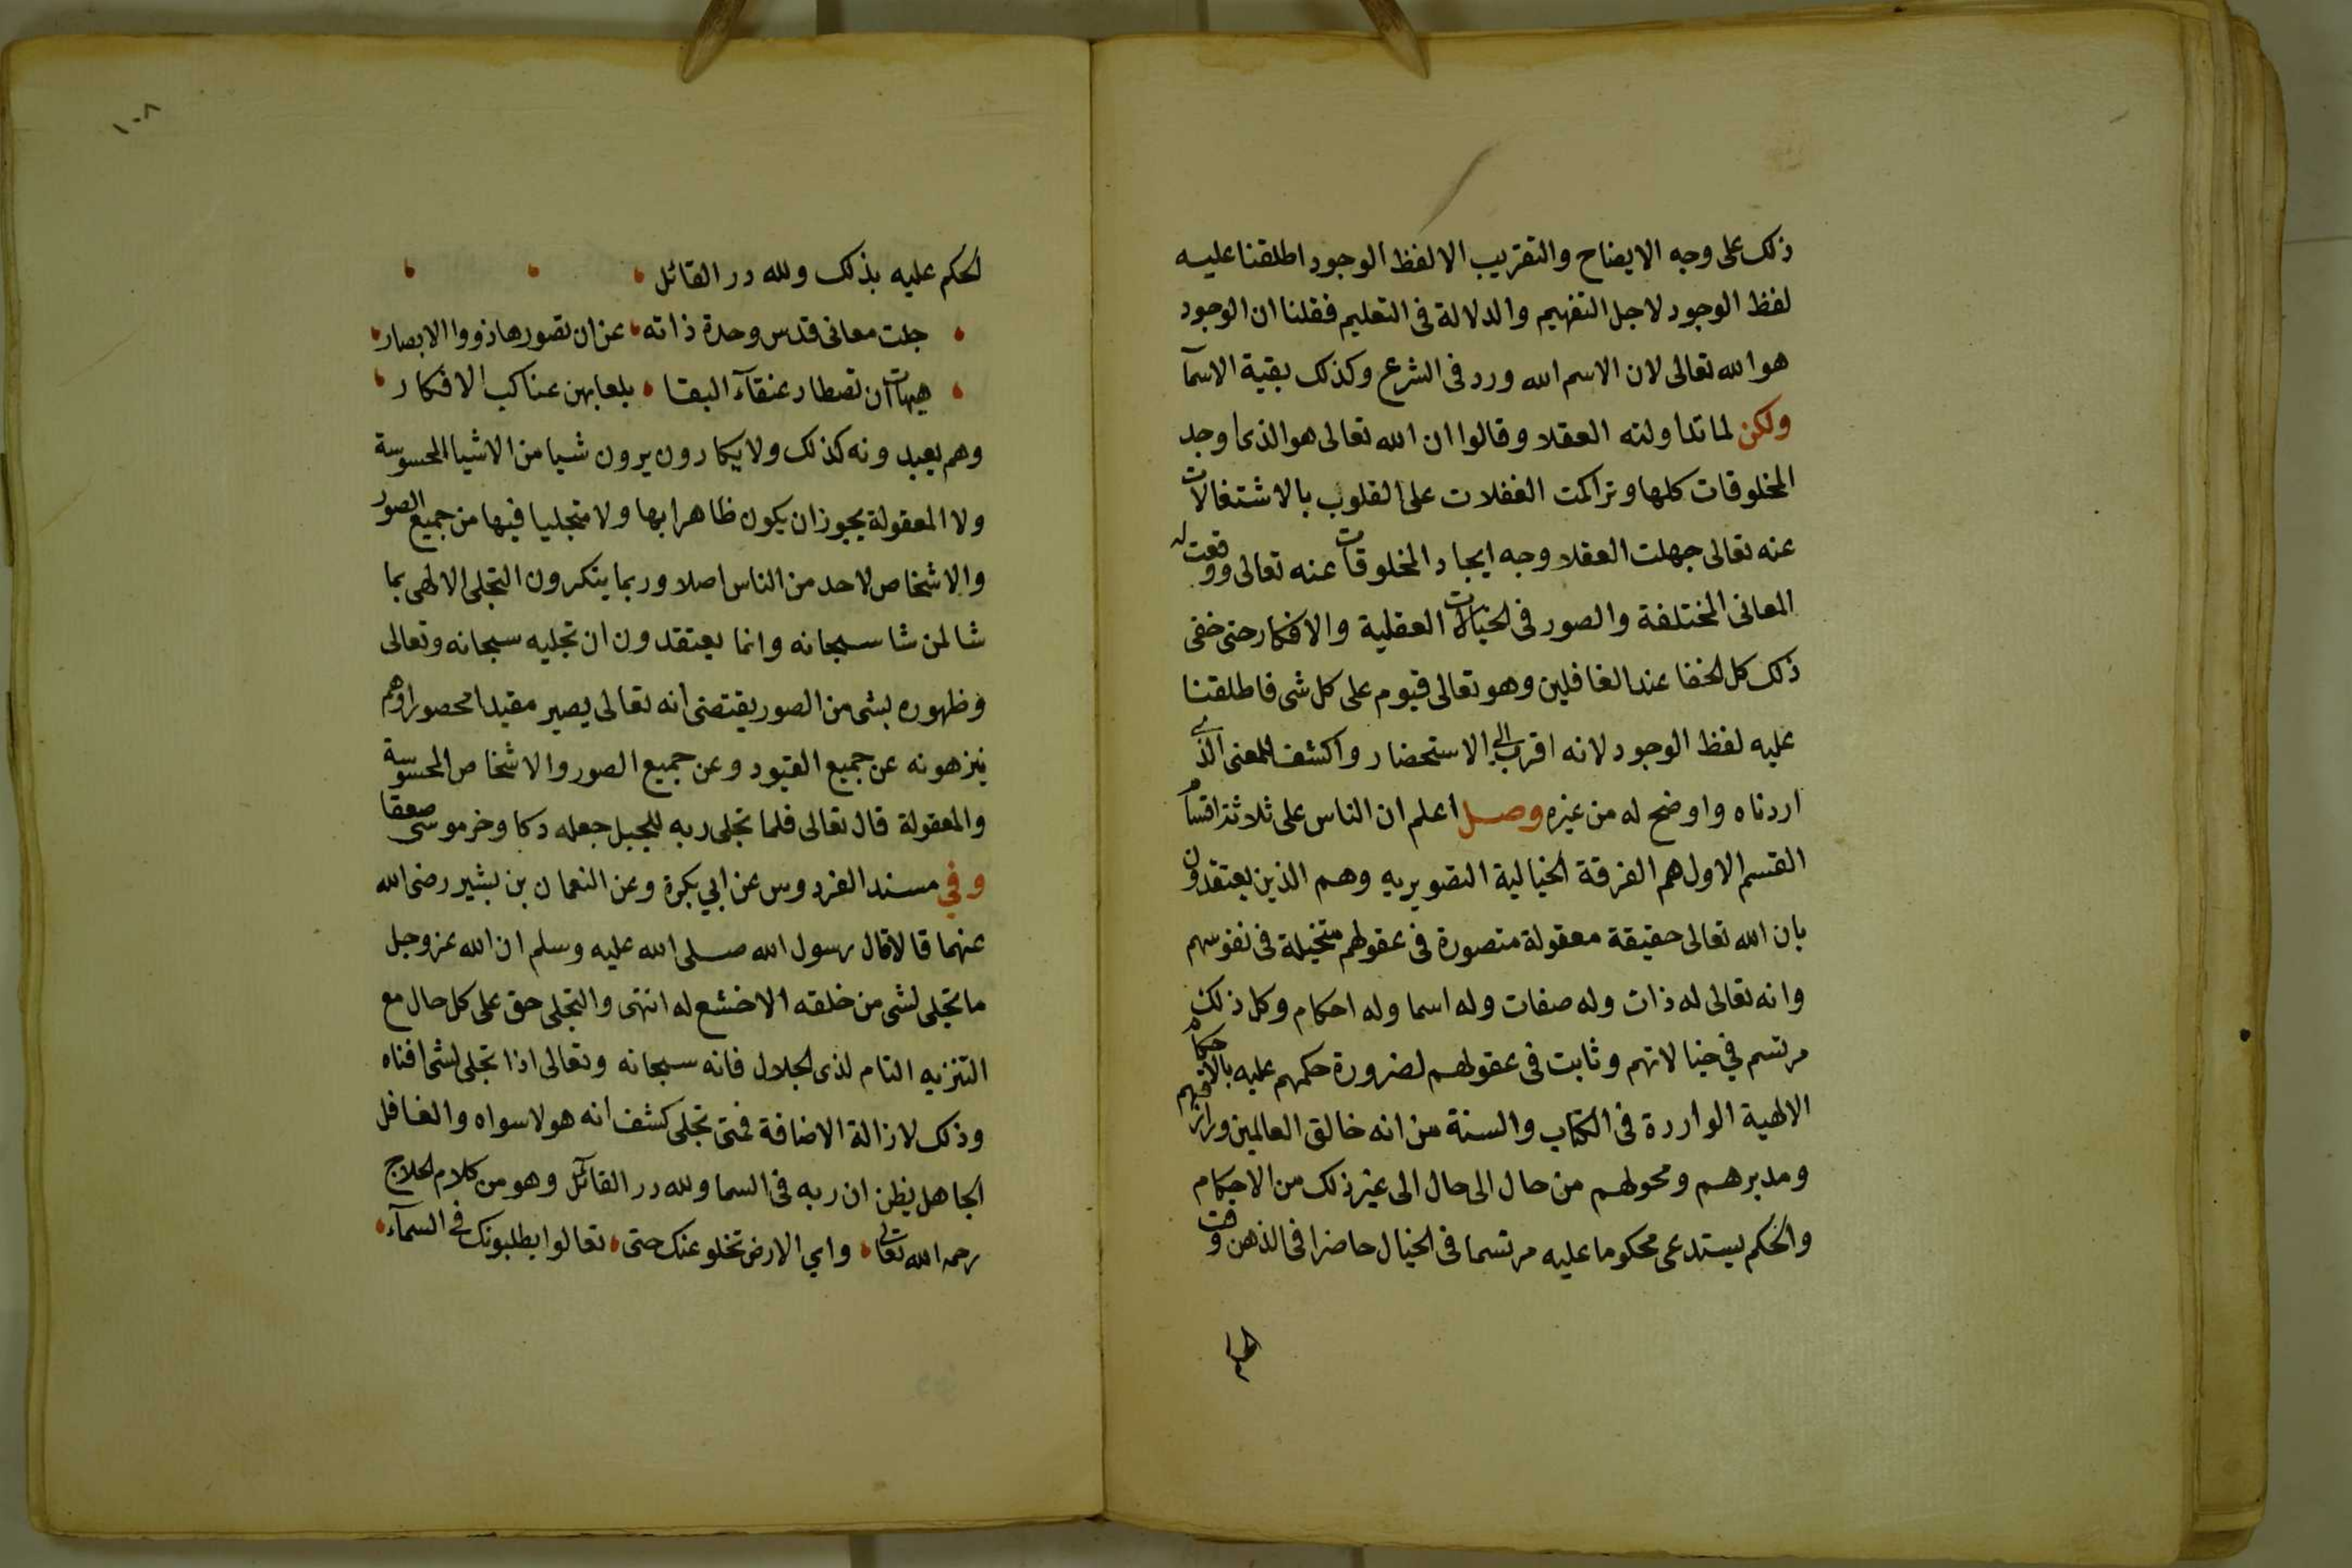 ذلك على وجه الايضاح والتقريب الا لفظ الوجود اطلقنا عليه
لفظ الوجود لاجل التفهيم والدلالة فى التعليم فقلنا ان الوجود
هو الله تعالى لان الاسم الله ورد فى الشرع وكذلك بقية الاسمآ
ولكن لما تداولته العقلا وقالوا ان الله تعالى هو الذى اوجد
المخلوقات كلها وتراكمت الغفلات على القلوب بالاشتغالات
عنه تعالى جهلت العقلا وجه ايجاد المخلوقات عنه تعالى ووقعت له
المعانى المختلفة والصور فى الخيالات العقلية والافكار حتى خفى
ذلك كل الخفا عند الغافلين وهو تعالى قيوم على كل شى فاطلقنا
عليه لفظ الوجود لانه اقرب الى الاستحضار واكشف للمعنى الذى
اردناه واوضح له من غيره وصل اعلم ان الناس على ثلاثة اقسام
القسم الاول هم الفرقة الخيالية التصويريه وهم الذين يعتقدون
بان الله تعالى حقيقة معقولة متصورة فى عقولهم متخيلة فى نفوسهم
وانه تعالى له ذات وله صفات وله اسما وله احكام وكل ذلك
مرتسم في خيالاتهم وثابت فى عقولهم لضرورة حكمهم عليه بالاحكام
الالهية الواردة فى الكتاب والسنة من انه خالق العالمين ورازقهم
ومدبرهم ومحولهم من حال الى حال الى غير ذلك من الاحكام
والحكم يستدعى محكوما عليه مرتسما فى الخيال حاضرا فى الذهن وقت
١٠٨
الحكم عليه بذلك ولله در القائل
جلت معانى قدس وحدة ذاته عن ان تصورها ذووا الابصار
هيهات ان تصطاد عنقآء البقا بلعابهن عناكب الافكار
وهم يعبدونه كذلك ولا يكادون يرون شيا من الاشيا المحسوسة
ولا المعقولة يجوز ان يكون ظاهرا بها ولا متجليا فيها من جميع الصور
والاشخاص لاحد من الناس اصلا وربما ينكرون التجلى الالهى بما
شا لمن شا سبحانه وانما يعتقدون ان تجليه سبحانه وتعالى
وظهوره بشى من الصور يقتضى انه تعالى يصير مقيدا محصورا وهم
ينزهونه عن جميع القيود وعن جميع الصور والاشخاص المحسوسة
والمعقولة قال تعالى فلما تجلى ربه للجبل جعله دكا وخر موسى صعقا
وفي مسند الفردوس عن ابي بكرة وعن النعمان بن بشير رضى الله
عنهما قالا قال رسول الله صلى الله عليه وسلم ان الله عز وجل
ما تجلى لشى من خلقه الا خشع له انتهى والتجلى حق على كل حال مع
التنزيه التام لذى الجلال فانه سبحانه وتعالى اذا تجلى لشى افناه
وذلك لازالة الاضافة فمتى تجلى كشف انه هو لا سواه والغافل
الجاهل يظن ان ربه فى السما ولله در القائل وهو من كلام الحلاج
رحمه الله تعالى واي الارض تخلو عنك حتى تعالوا يطلبونك فى السمآء